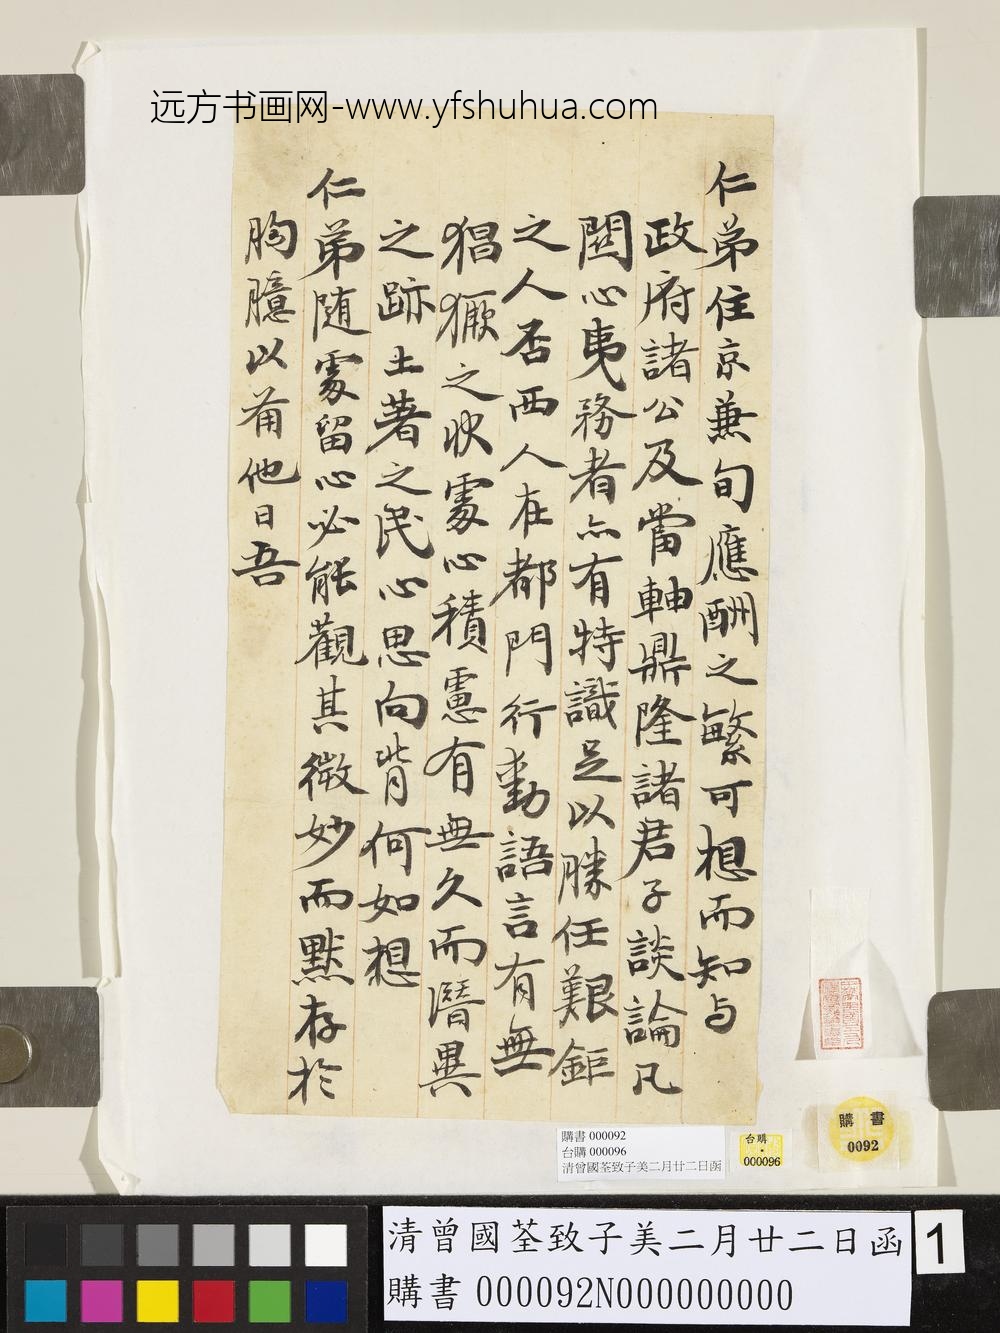 远方书画网-www.yfshuhua.com
仁弟住京兼旬應酬之繁可想而知与
政府諸公及當軸鼎隆諸君子談論凡
關心夷務者亦有特識足以勝任艱鉅
之人否西人在都門行動語言有無
猖獗之狀處心積慮有無久而潛異
之跡土著之民心思向背何如想
仁弟随處留心必能觀其微妙而默存於
胸臆以備他日吾
購書
0092
購書 000092
台購 000096
清曾國荃致子美二月廿二日函
台購
000096
清曾國荃致子美二月廿二日函
購書 000092N000000000
1